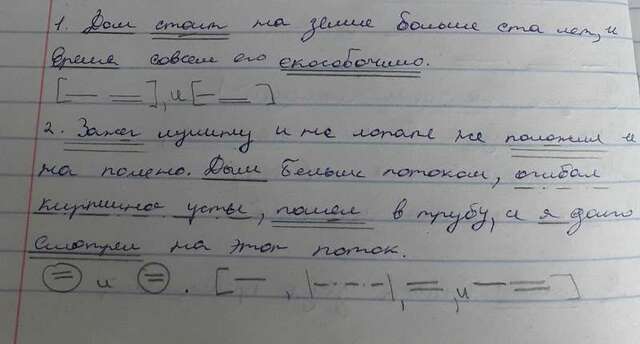 1. Дом стоит на земле больше ста лет, и
время совсем его скособочило.
[— =], и [— =]
2. Зажег лучину и на лопате же положил и
на полено. Дым белым потоком, огибал
кирпичное устье, пошел в трубу, а я долго
смотрел на этот поток.
(=) и (=). [—, |-·-·-·|, =, и — =]